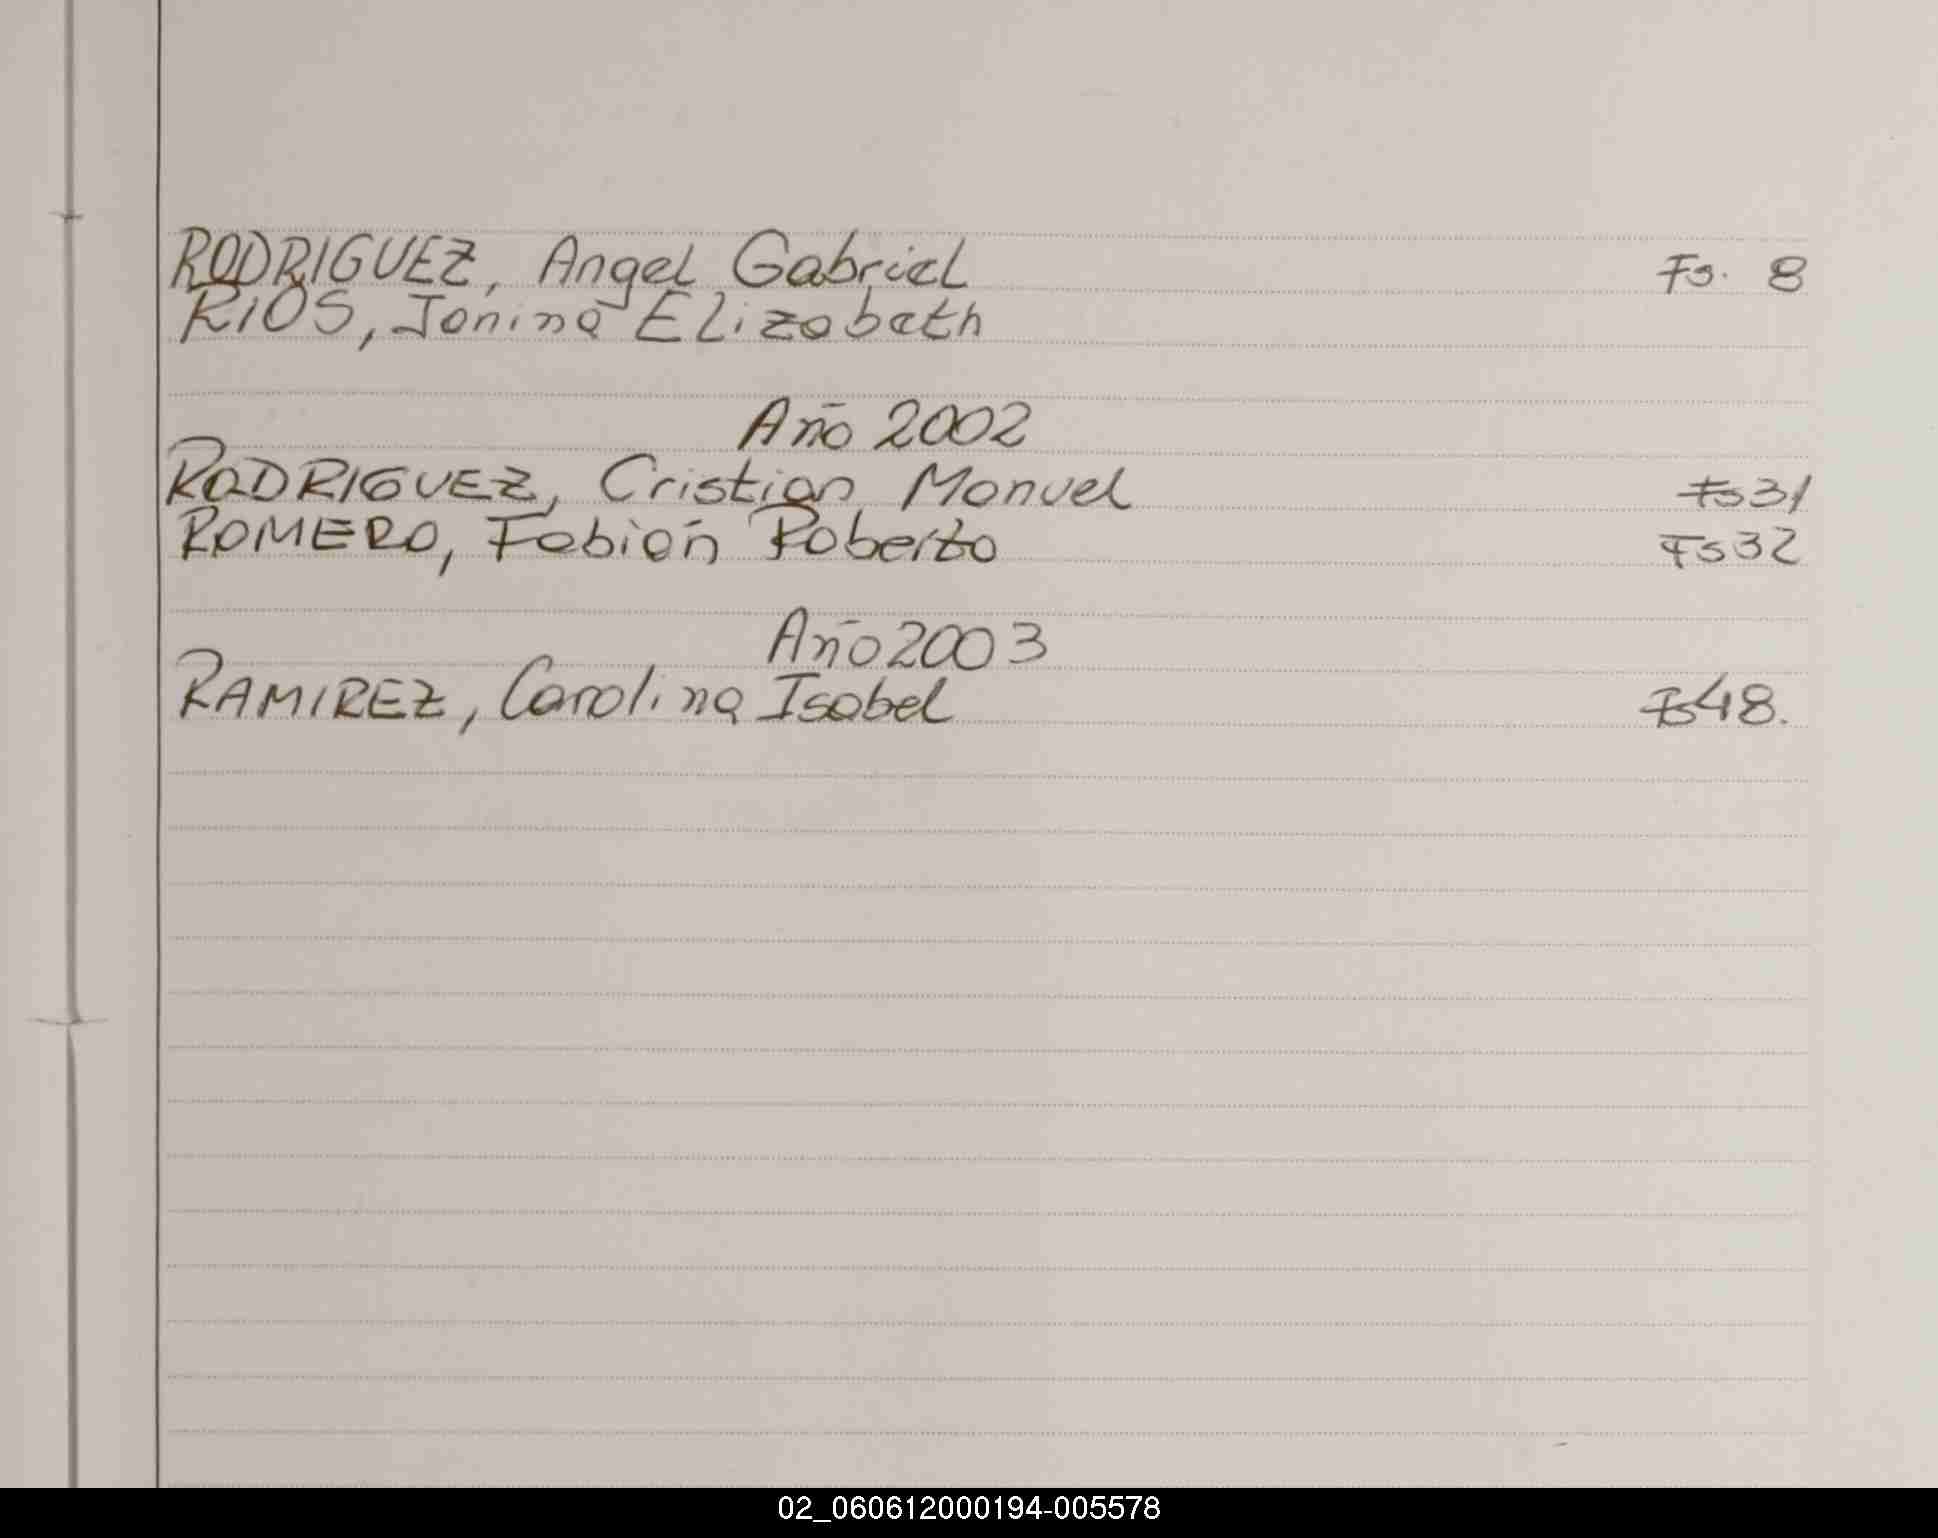 RODRIGUEZ, Angel Gabriel Fs. 8
RIOS, Janina Elizabeth
Año 2002
RODRIGUEZ, Cristian Manuel Fs 31
ROMERO, Fabián Roberto Fs 32
Año 2003
RAMIREZ, Carolina Isabel Fs 48.
02_060612000194-005578